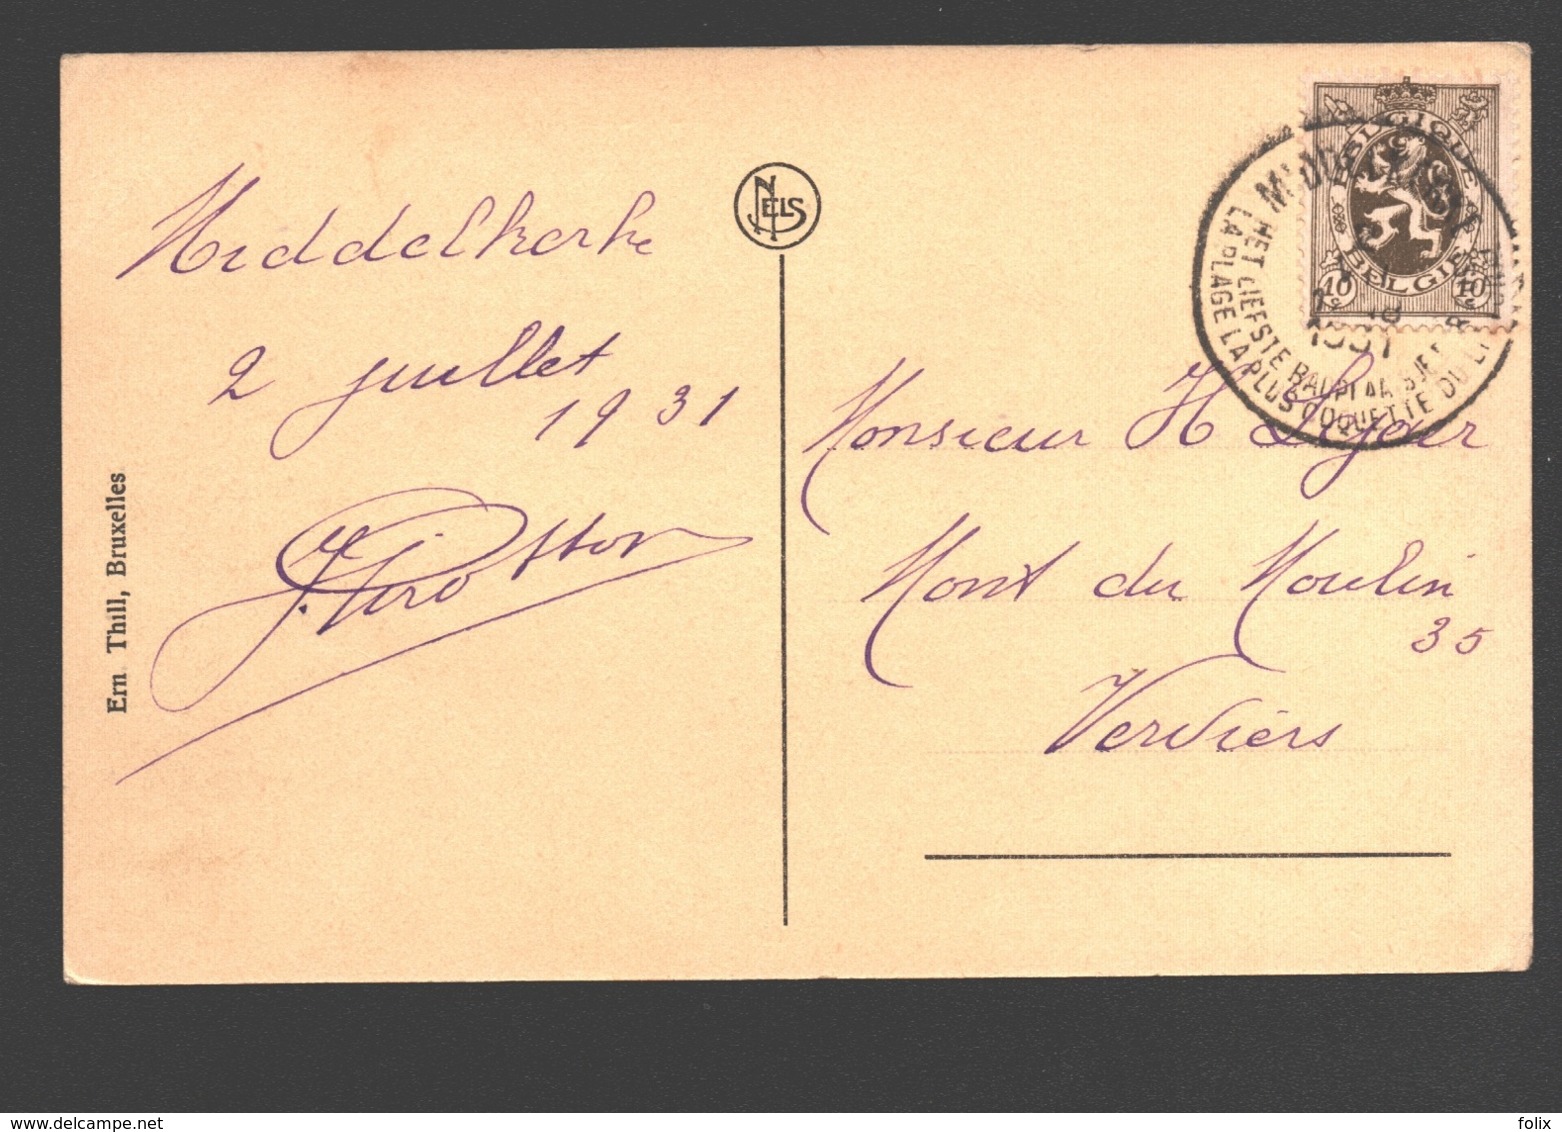 Middelkerke
2 juillet
1931
Ern. Thill, Bruxelles
NELS
BELGIQUE
BELGIË
10c 10c
1931
HET LIEFSTE BADPLAATSJE
LA PLAGE LA PLUS COQUETTE DU LI
Monsieur H Lejour
Mont du Moulin
35
Verviers
folix